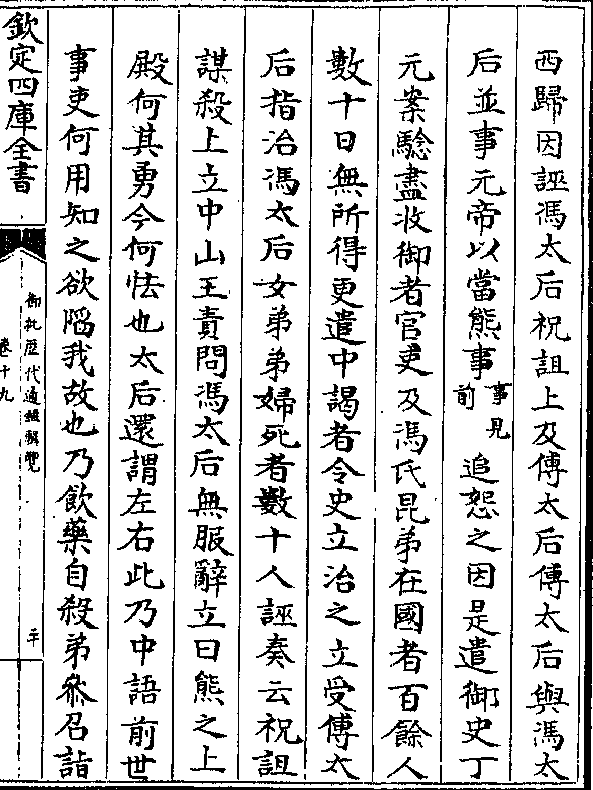 西歸因誣馮太后祝詛上及傅太后傅太后與馮太
后並事元帝以當熊事事見前追怨之因是遣御史丁
元案驗盡收御者官吏及馮氏昆弟在國者百餘人
數十日無所得更遣中謁者令史立治之立受傅太
后指治馮太后女弟弟婦死者數十人誣奏云祝詛
謀殺上立中山王責問馮太后無服辭立曰熊之上
殿何其勇今何怯也太后還謂左右此乃中語前世
事吏何用知之欲陷我故也乃飲藥自殺弟叅召詣
欽定四庫全書
御批歷代通鑑輯覽
卷十九